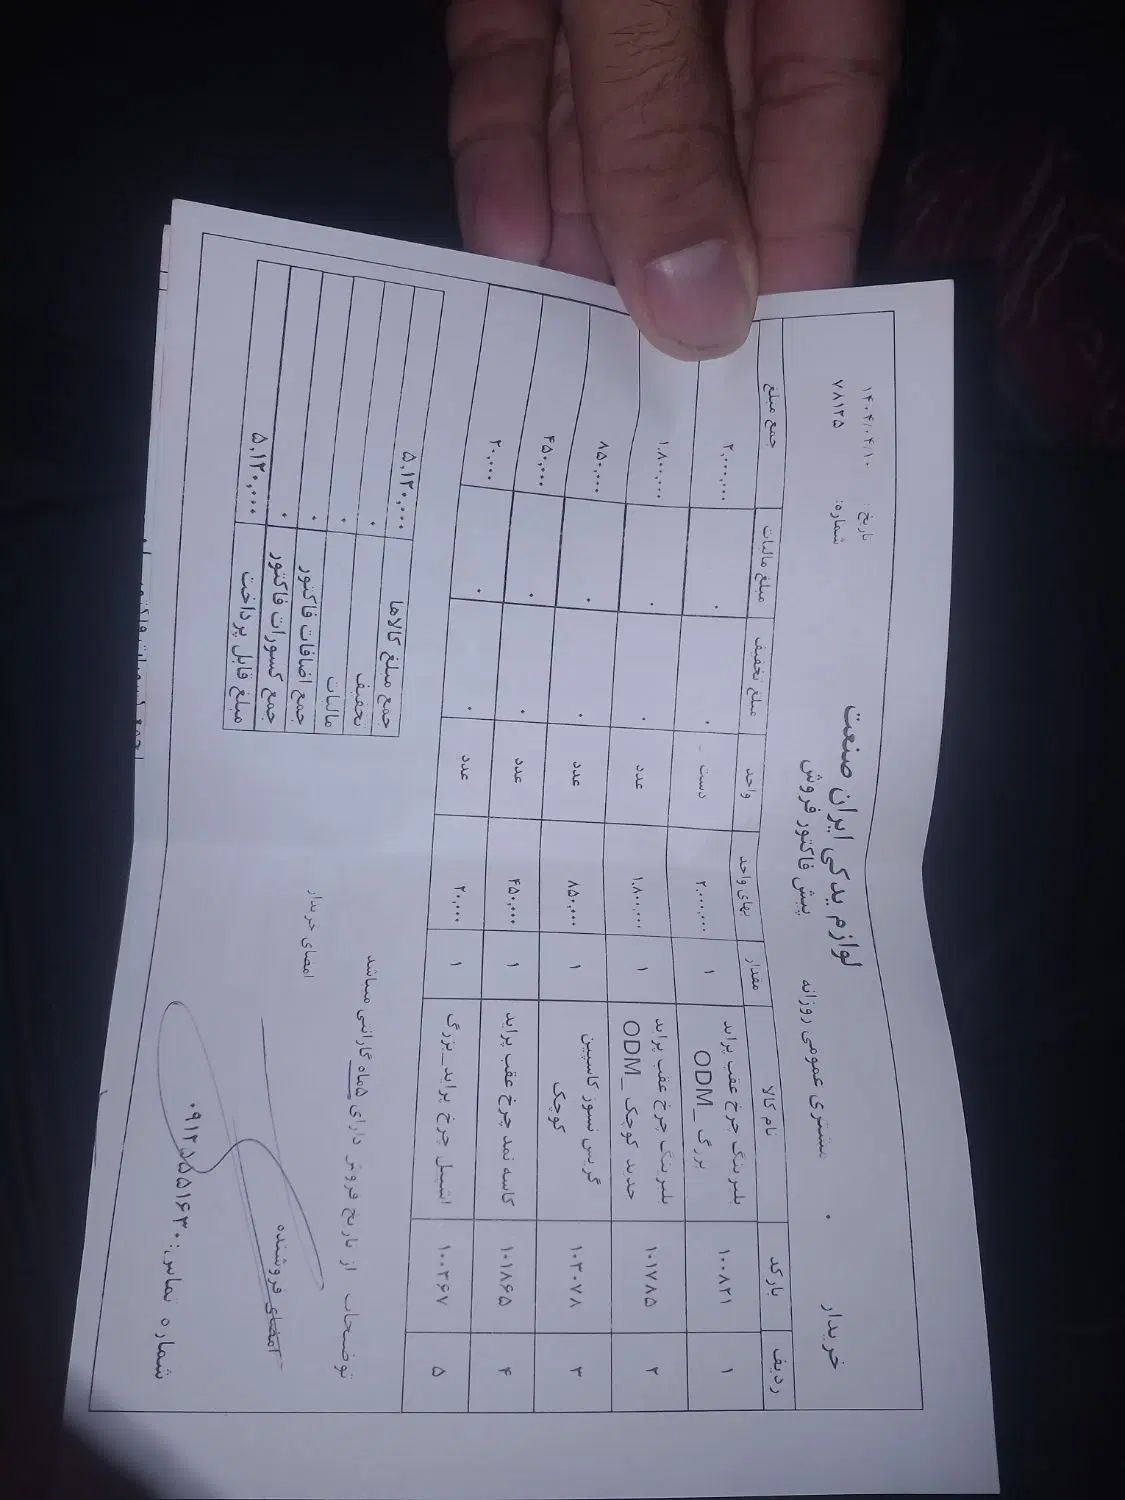 لوازم یدکی ایران صنعت
پیش فاکتور فروش
تاریخ: ۱۴۰۴/۰۴/۱۰
شماره: ۷۸۱۲۵
خریدار ۰ مشتری عمومی روزانه
ردیف بارکد نام کالا مقدار بهای واحد واحد مبلغ تخفیف مبلغ مالیات جمع مبلغ
۱ ۱۰۰۸۲۱ بلبرینگ چرخ عقب پراید بزرگ _ODM ۱ ۲.۰۰۰.۰۰۰ دست ۰ ۰ ۲,۰۰۰,۰۰۰
۲ ۱۰۱۷۸۵ بلبرینگ چرخ عقب پراید جدید کوچک _ODM ۱ ۱.۸۰۰.۰۰۰ عدد ۰ ۰ ۱.۸۰۰,۰۰۰
۳ ۱۰۲۰۷۸ گریس نسوز کاسپین کوچک ۱ ۸۵۰,۰۰۰ عدد ۰ ۰ ۸۵۰,۰۰۰
۴ ۱۰۱۸۶۵ کاسه نمد چرخ عقب پراید ۱ ۴۵۰,۰۰۰ عدد ۰ ۰ ۴۵۰,۰۰۰
۵ ۱۰۰۲۶۷ اشپیل چرخ پراید_بزرگ ۱ ۲۰,۰۰۰ عدد ۰ ۰ ۲۰,۰۰۰
توضیحات از تاریخ فروش دارای ۵ماه گارانتی میباشد
جمع مبلغ کالاها ۵,۱۲۰,۰۰۰
تخفیف ۰
مالیات ۰
جمع اضافات فاکتور ۰
جمع کسورات فاکتور ۰
مبلغ قابل پرداخت ۵,۱۲۰,۰۰۰
امضای فروشنده
امضای خریدار
شماره تماس: ۰۹۱۲۵۵۵۱۶۳۰